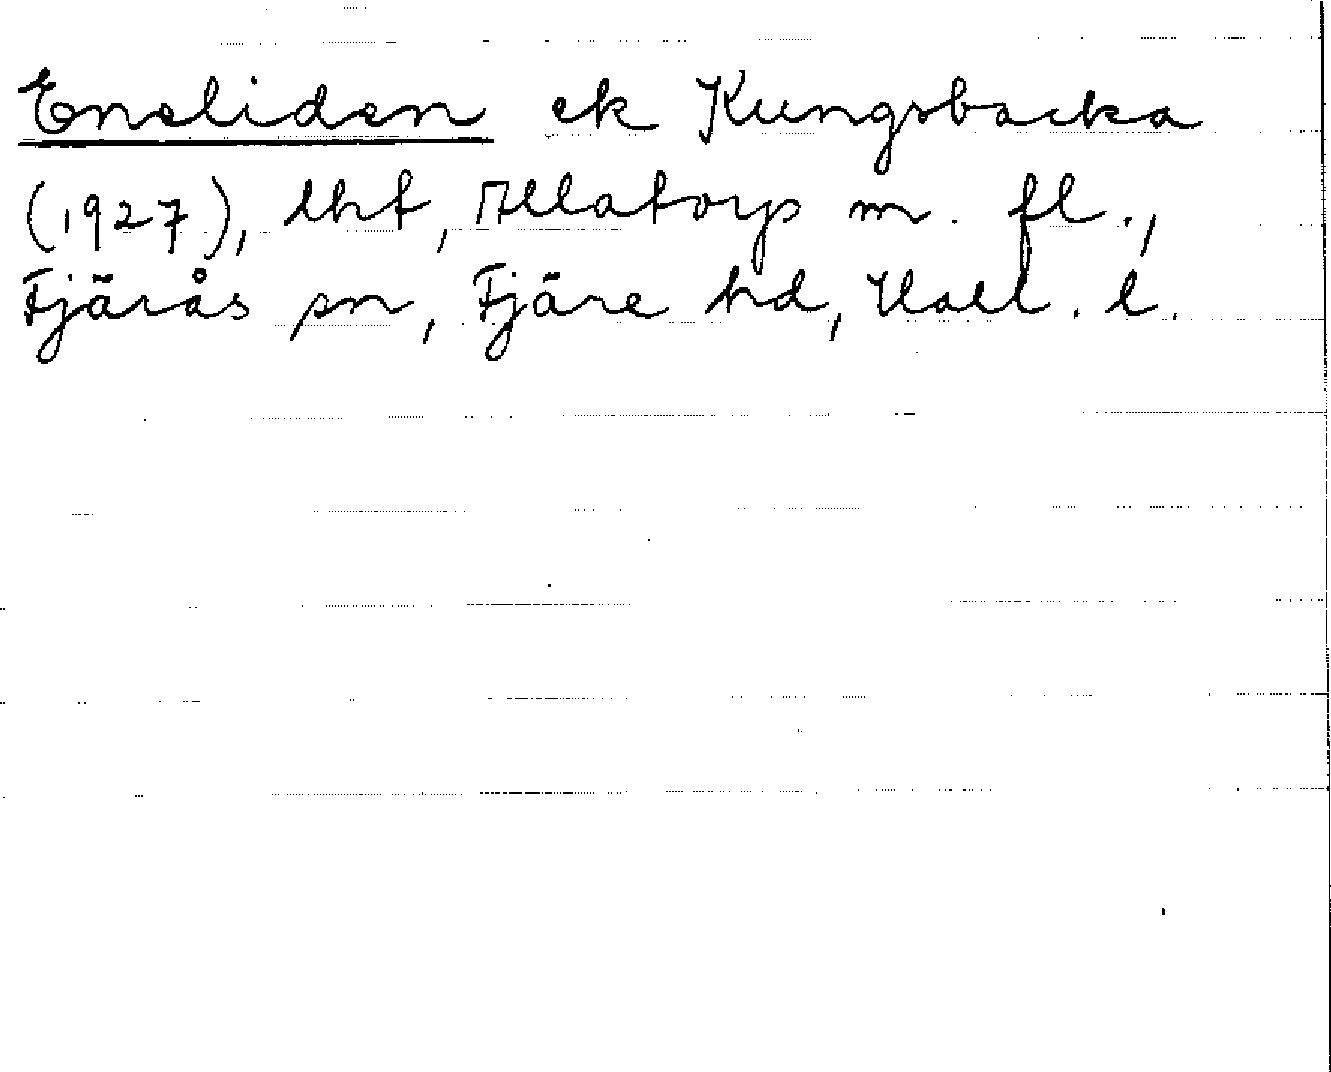 Eneliden ek Kungsbacka
(1927), lht, Allatorp m. fl.,
Fjärås sn, Fjäre hd, Hall. l.